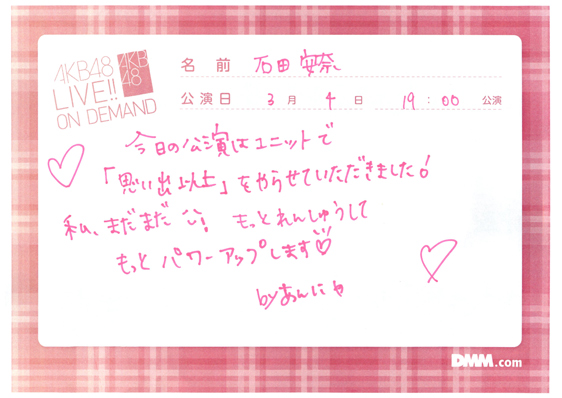 AKB48
LIVE!!
ON DEMAND
AKB
48
名 前 石田 安奈
公演日 3 月 4 日 19 : 00 公演
今日の公演はユニットで
「思い出以上」をやらせていただきました!
私、まだまだ !! もっとれんしゅうして
もっと パワーアップします♡
byあんにゃ
DMM.com